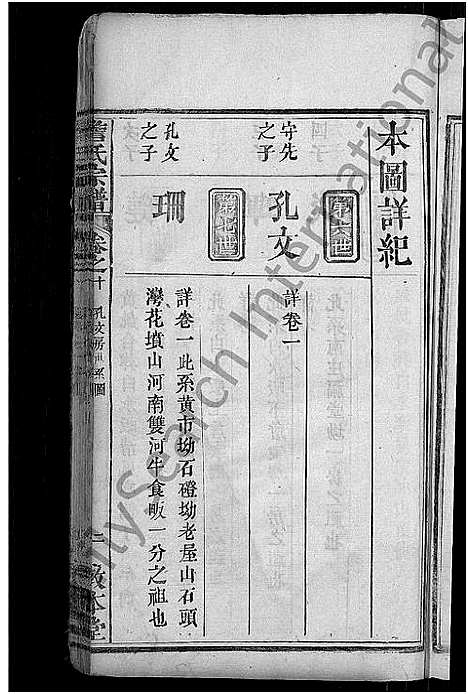 本圖詳紀
守先
之子
第六世
孔文
詳卷一
孔文
之子
第七世
珊
詳卷一此系黃市坳石磴坳老屋山石頭
灣花墳山河南雙河牛食畈一分之祖也
詹氏宗譜
卷之十
孔文房世系圖
二
敦本堂